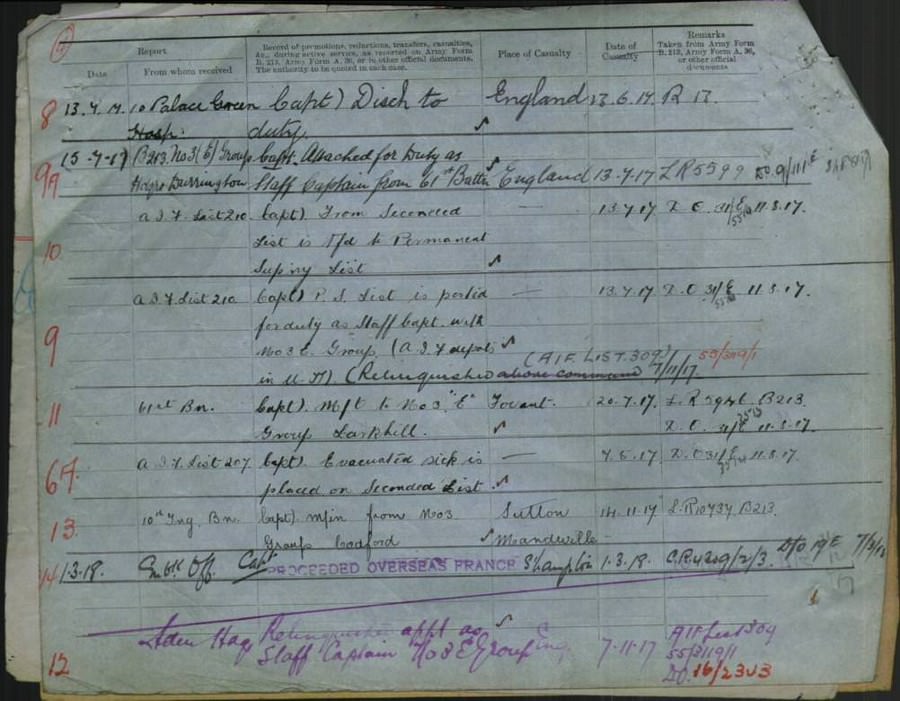 Report
Record of promotions, reductions, transfers, casualties, &c., during active service, as reported on Army Form B. 213, Army Form A. 36, or in other official documents. The authority to be quoted in each case.
Place of Casualty
Date of Casualty
Remarks
Taken from Army Form B. 213, Army Form A. 36, or other official documents
Date
From whom received
8 13.7.17. 10 Palace Green Capt) Disch to England 13.6.17. R 13.
Hosp. duty.
9A 15-7-17 B213. No3(E) Group Capt. Attached for Duty as
Hdqrs Durrington Staff Captain from 61st Battn England 13.7.17 L R 5599 DO.9/111E
A.I.F. List 210. Capt) From Seconded — 13.7.17 D.O. 31/E 11.8.17.
10 List is T/d to Permanent
Sup'ny List
A.I.F. List 210 Capt) P.S. List is posted — 13.7.17 D.O 31/E 11.8.17.
for duty as Staff Capt. with
9 No 3 E. Group (A.I.F depots
in U.K). (Relinquished above command (AIF LIST.309) 7/11/17. 55/3119/1
11 61st Bn. Capt). M/t to No3 "E" Fovant. 20.7.17. L.R 5946. B213.
Group Larkhill. D.O. 31/E 11.8.17.
67. A.I.F. List 207. Capt). Evacuated sick is — 7.5.17 D.O 31/E 11.8.17.
placed on Seconded List.
13 10th Trg. Bn. Capt). m/in from No3 Sutton 14.11.17 L.R10737. B213.
Group Codford Mandeville
14 1.3.18. Off. Capt PROCEEDED OVERSEAS FRANCE S'hampton 1.3.18. C.R4209/2/3.
Hdqrs Relinquishes appt as Eng.
12 Staff Captain No 3 E Group 7-11-17 AIF List 309
55/3119/1
DO. 16/2303